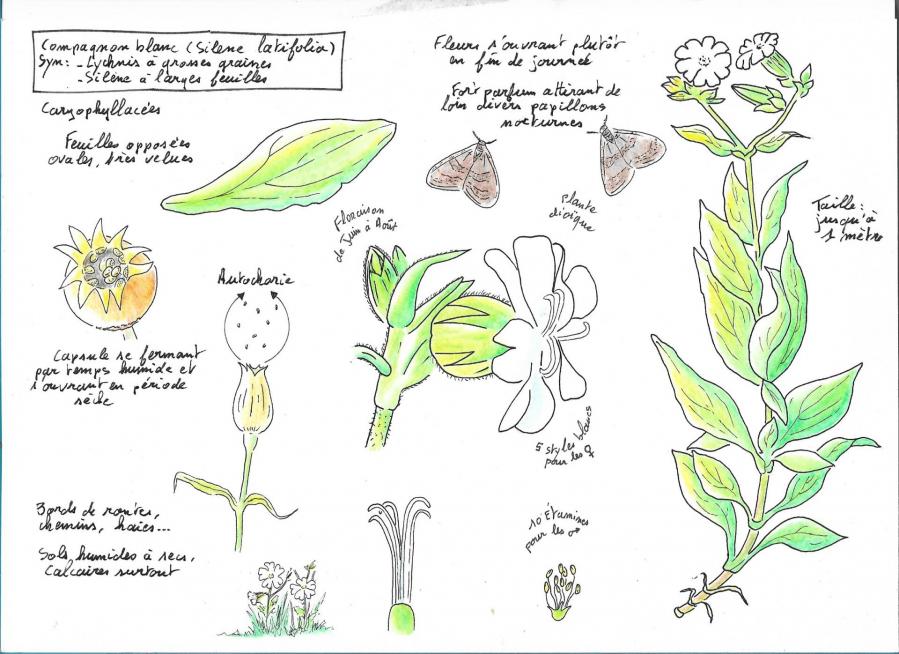 Compagnon blanc (Silene latifolia)
Syn: - Lychnis à grosses graines
- Silène à larges feuilles
Caryophyllacées
Feuilles opposées
ovales, très velues
Fleurs s'ouvrant plutôt
en fin de journée
Fort parfum attirant de
loin divers papillons
nocturnes
Taille:
jusqu'à
1 mètre
Floraison
de Juin à Août
Plante
dioïque
Autochorie
Capsule se fermant
par temps humide et
s'ouvrant en période
sèche
5 styles blancs
pour les ♀
10 Étamines
pour les ♂
Bords de routes,
chemins, haies...
Sols humides à secs,
Calcaires surtout